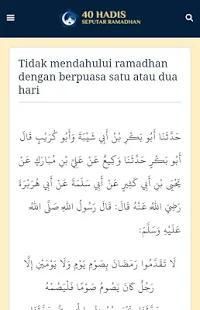 40 HADIS
SEPUTAR RAMADHAN
Tidak mendahului ramadhan
dengan berpuasa satu atau dua
hari
حَدَّثَنَا أَبُو بَكْرِ بْنُ أَبِي شَيْبَةَ وَأَبُو كُرَيْبٍ قَالَ
أَبُو بَكْرٍ حَدَّثَنَا وَكِيعٌ عَنْ عَلِيِّ بْنِ مُبَارَكٍ عَنْ
يَحْيَى بْنِ أَبِي كَثِيرٍ عَنْ أَبِي سَلَمَةَ عَنْ أَبِي هُرَيْرَةَ
رَضِيَ اللَّهُ عَنْهُ قَالَ: قَالَ رَسُولُ اللَّهِ صَلَّى اللَّهُ
عَلَيْهِ وَسَلَّمَ:
لَا تَقَدَّمُوا رَمَضَانَ بِصَوْمِ يَوْمٍ وَلَا يَوْمَيْنِ إِلَّا
رَجُلٌ كَانَ يَصُومُ صَوْمًا فَلْيَصُمْهُ